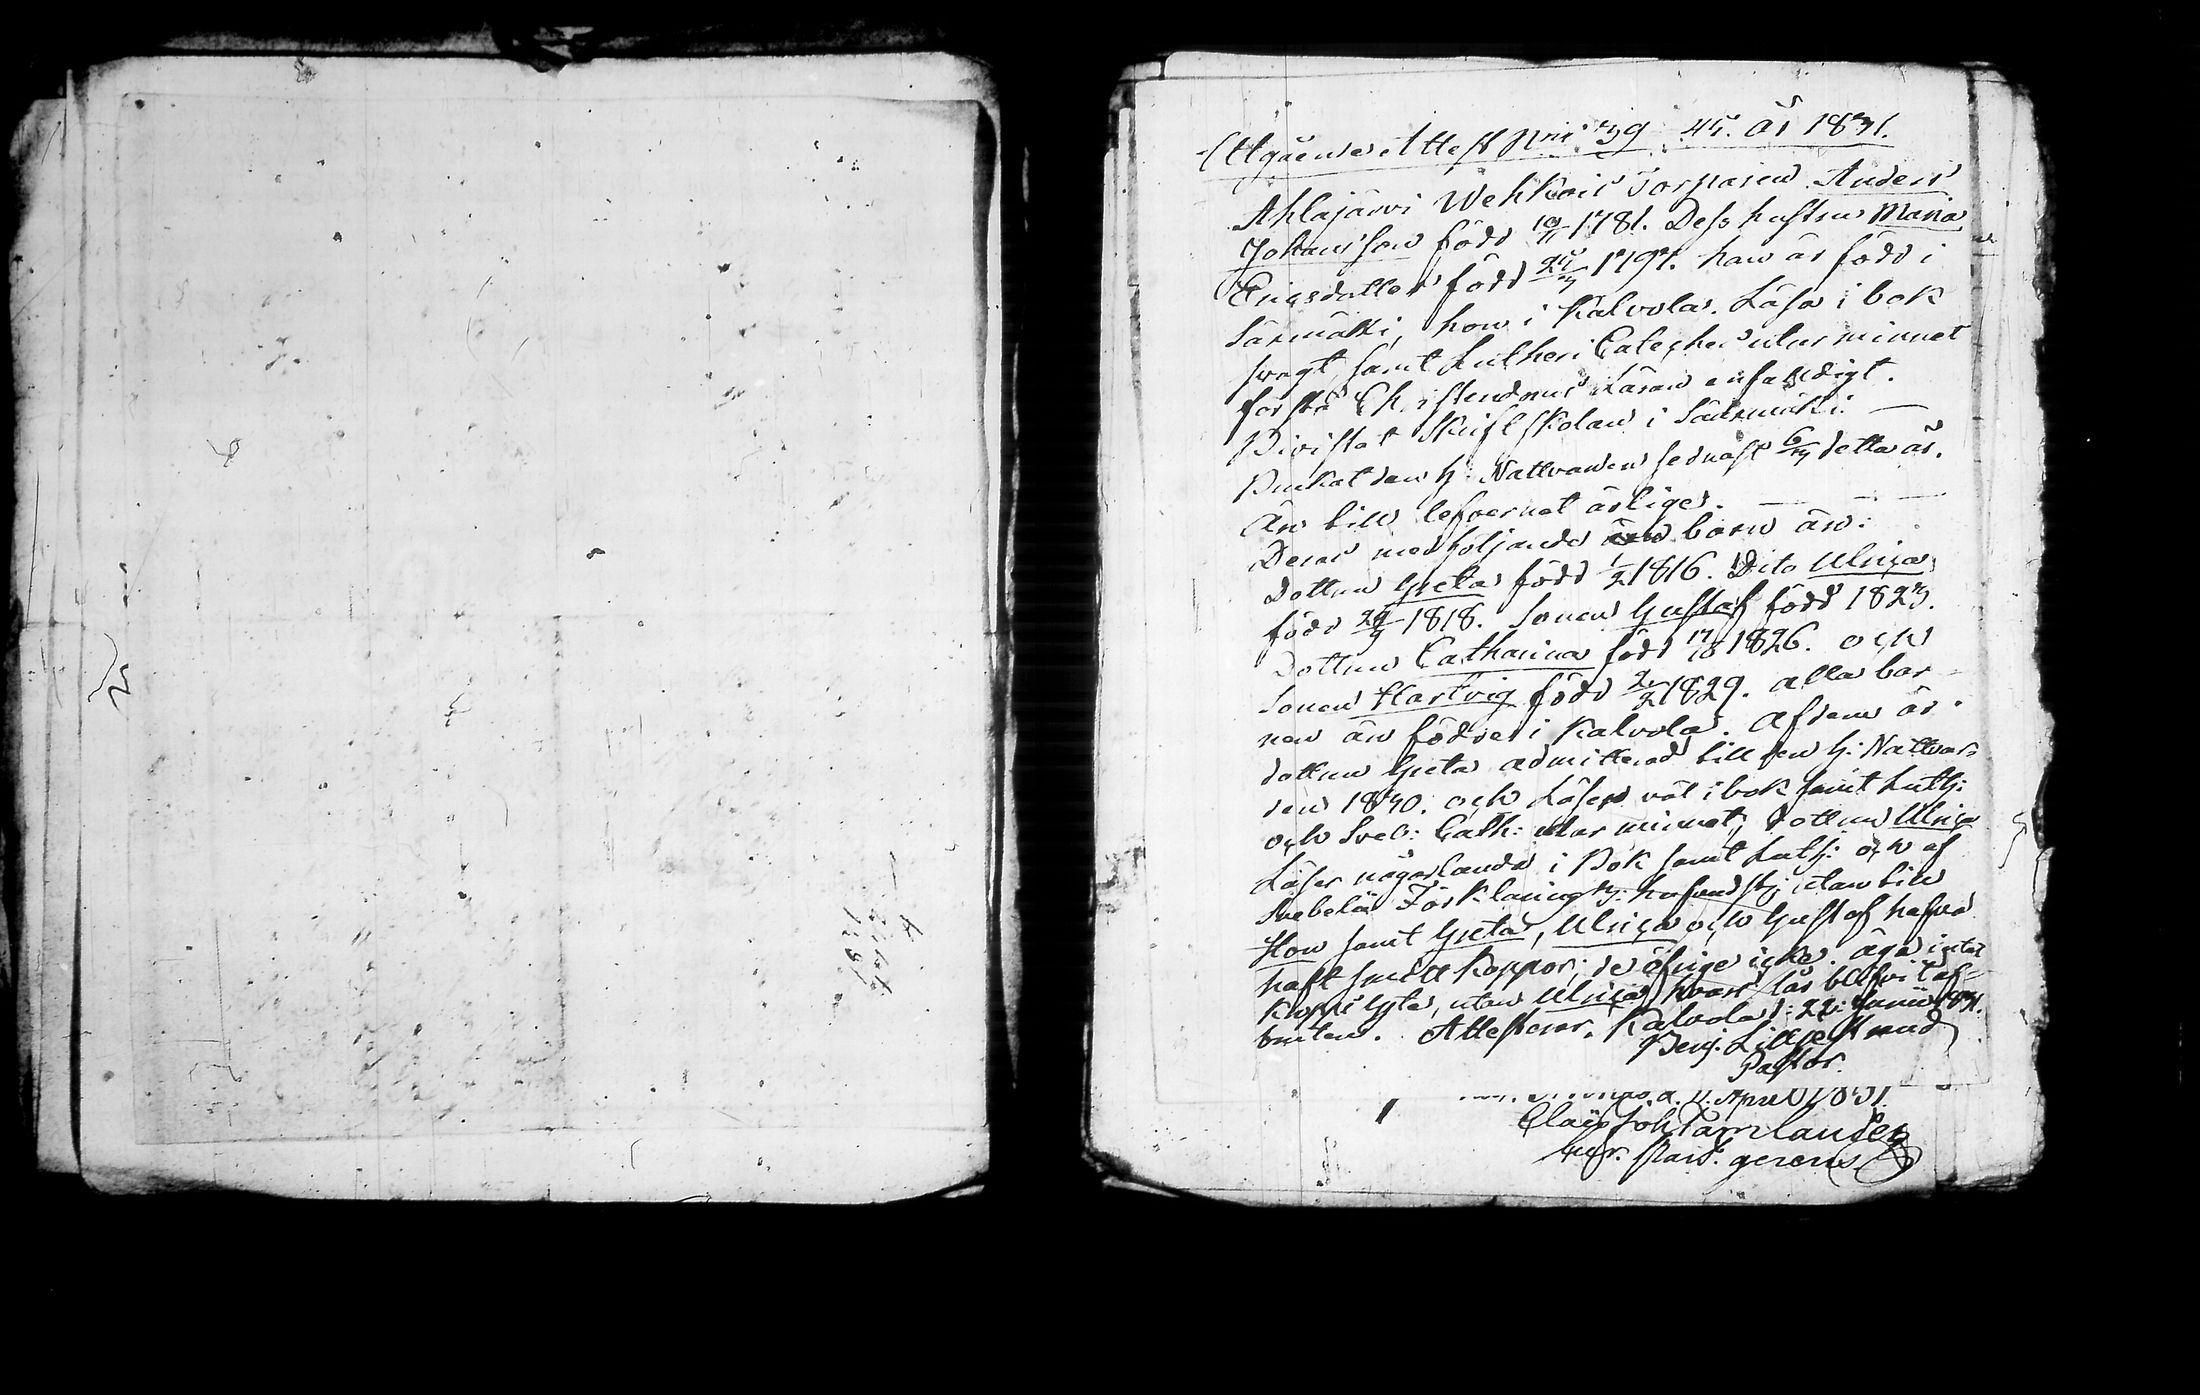 Utgående Attest Nrii 39 45. år 1831.
Ahlajärvi Wehkois Torparen Anders
Johansson född 10/11 1781. Dess hustru Maria
Ericsdotter född 25/3 179. han är född i
Säxmäki, hon i Kalvola. Läsa i bok
svagt, samt Lutheri Cateches utur minnet
förstå Christendoms Läran enfaldigt.
Bivistat Skriftskolan i Säxmäki. —
Brukat den H. Nattvarden sednast 6/3 detta år.
Äro till lefvernet ärlige. — — —
Deras medföljande barn äro:
Dottren Greta född 1/2 1816. Dito Ulrica
född 29/9 1818. Sonen Gustaf född 1823.
Dottren Catharina född 17/10 1826. och
Sonen Hartvig född 2/2 1829. alla bar-
nen äro födde i Kalvola. Af dem är
dottren Greta admitterad till den H: Nattvar=
den 1830. och Läser väl i bok samt Luth:
och Sveb: Cath: utur minnet, dottren Ulrica
Läser någorlunda i Bok samt Luth: och af
Svebelii Förklaring 3: hufvudst: utan till
Hon samt Greta, Ulrica och Gustaf hafva
haft smitt koppor; de öfrige icke. äga intet
lyte, utan Ulrica hvars lår blifvit af=
bruten. Attesterar. Kalvola d: 22: 1831.
Benj. Lilljestrand
Pastor.
d. 11. April 1831.
Claës Joh. Tamlander
past. gerens